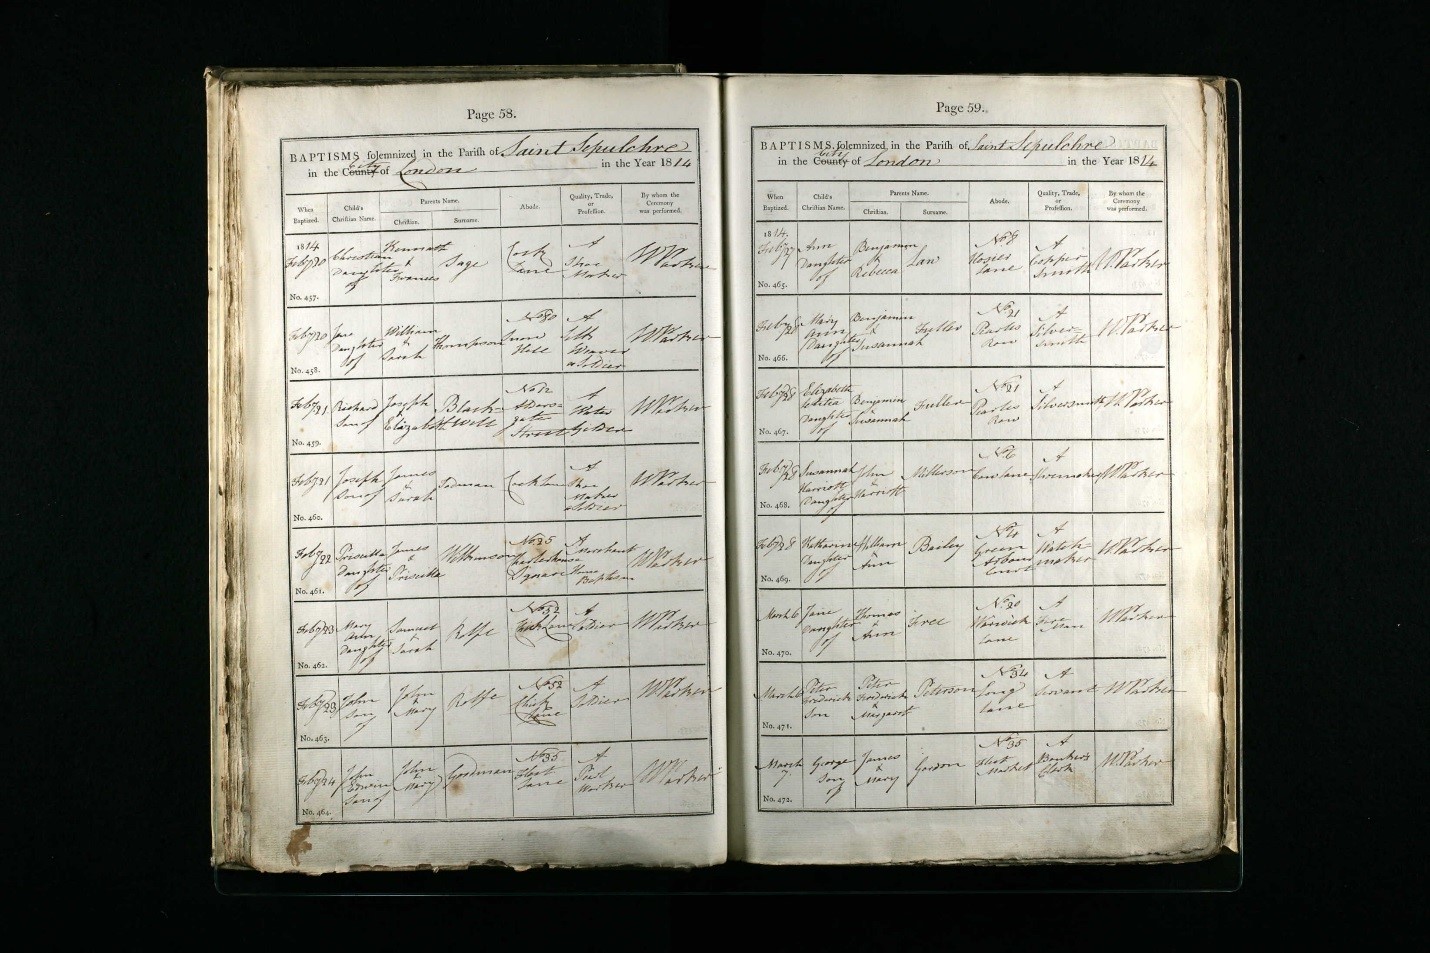 Page 58.
BAPTISMS solemnized in the Parish of Saint Sepulchre
in the County City of London in the Year 1814
When Baptized. Child's Christian Name. Parents Name. Christian. Surname. Abode. Quality, Trade, or Profession. By whom the Ceremony was performed.
1814 Kenneth A
Feby 20 Christian & Sage Cock Shoe W Parker
Daughter Frances Lane Maker
of
No. 457.
Jane William No 80 A
Feby 20 Daughter & Thompson Snow Silk W Parker
of Sarah Hill Weaver
No. 458. Soldier
No 12 A
Feby 21 Richard Joseph Black- Alders- Water W Parker
Son of & Elizabeth Well gate
Street
No. 459.
A
Feby 21 Joseph James Cock Lane Shoe W Parker
Son of & Sarah Maker
Soldier
No. 460.
No 35 A
Feby 22 Priscilla James Wilkinson Charterhouse Merchant W Parker
Daughter & Priscilla Square
of
No. 461.
No 52 A
Feby 23 Mary Samuel Rolfe Soldier W Parker
Ann & Sarah
Daughter
of
No. 462.
No 52 A
Feby 23 John John Rolfe Chick Soldier W Parker
Son & Mary Lane
of
No. 463.
No 35 A
Feby 24 John John Goodman Fleet W Parker
Edwin & Mary Lane Worker
Son of
No. 464.
Page 59.
BAPTISMS solemnized in the Parish of Saint Sepulchre
in the County City of London in the Year 1814
When Baptized. Child's Christian Name. Parents Name. Christian. Surname. Abode. Quality, Trade, or Profession. By whom the Ceremony was performed.
1814. No 8 A
Feby 27 Ann Benjamin Law Hosier Copper W. Parker
Daughter & Rebecca Lane Smith
of
No. 465.
No 21 A
Feby 28 Mary Benjamin Fuller Row Silver- W. Parker
Ann & smith
Daughter Susannah
of
No. 466.
No 21 A
Feby 28 Elizabeth Benjamin Fuller Row Silversmith W. Parker
Daughter & Susannah
of
No. 467.
No 6 A
Feby 28 Susannah John Cow Lane Shoemaker W Parker
Harriott & Harriott
Daughter
of
No. 468.
No 4 A
Feby 28 Katharine William Bailey Green Watch W Parker
Daughter & Ann Court maker
of
No. 469.
No 20 A
March 6 Jane Thomas Free Warwick Fire W Parker
Daughter & Ann Lane Man
of
No. 470.
No 34 A
March 6 Peter Peter Peterson Long Servant W Parker
Fredrick Fredrick Lane
Son & Margaret
No. 471.
No 35 A
March George James Gordon Fleet Banker's W Parker
7 Son & Mary Market Clerk
of
No. 472.